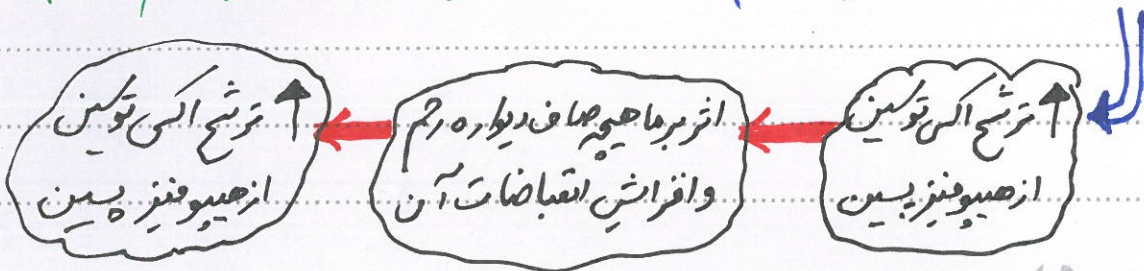 ↑ ترشح اکسی توسین
از هیپوفیز پسین
اثر بر ماهیچه صاف دیواره رحم
و افزایش انقباضات آن
↑ ترشح اکسی توسین
از هیپوفیز پسین